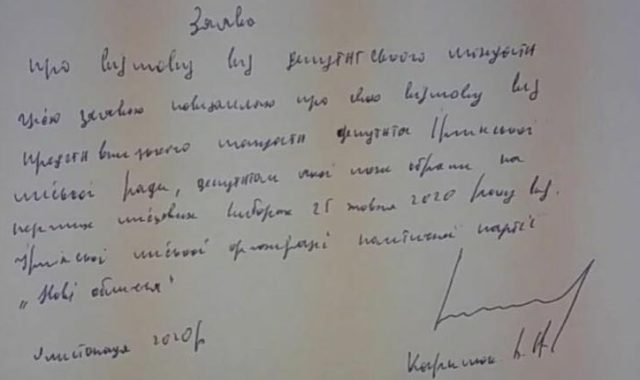 Заява
про відмову від депутатського мандата
Цією заявою повідомляю про свою відмову від
представницького мандата депутата Ірпінської
міської ради, депутатом якої мене обрано на
перших місцевих виборах 25 жовтня 2020 року від
Ірпінської міської організації політичної партії
„Нові обличчя"
листопада 2020р